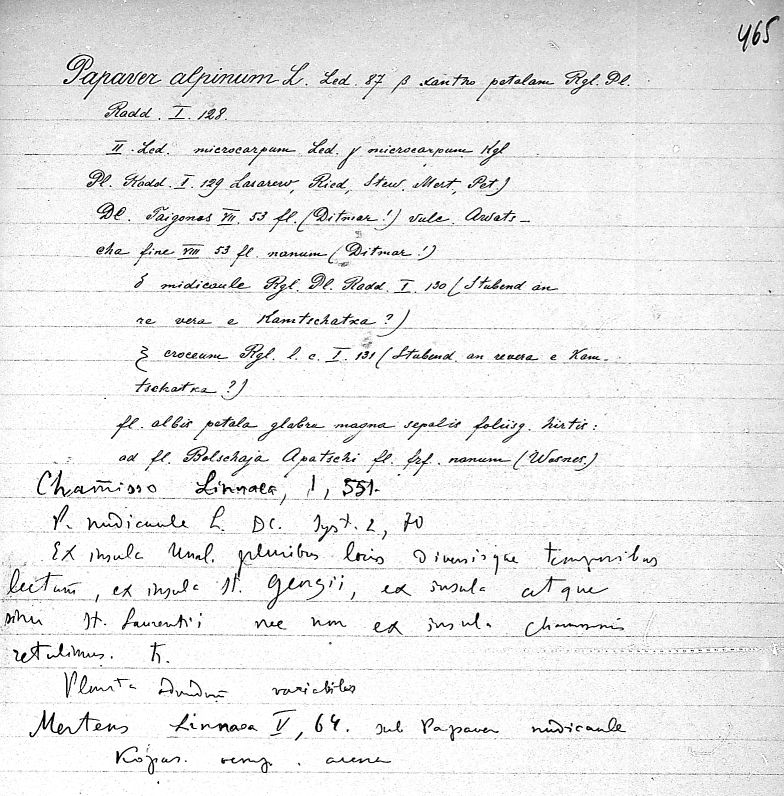 465
Papaver alpinum L. Led. 87 β xantho petalam Rgl. Pl.
Radd. I. 128.
II. Led. microcarpum Led. γ microcarpum Rgl
Pl. Radd. I. 129 Lasarew, Ried, Stew. Mert, Pet)
DC. Taigonos VII. 53 fl. (Ditmar!) vulc. Awats-
cha fine VIII 53 fl. nanum (Ditmar!)
midicaule Rgl. Pl. Radd. I. 130 (Stubend an
re vera e Kamtschatka?)
ξ croceum Rgl. l. c. I. 131 (Stubend an revera e Kam-
tschatka?)
fl. albis petala glabra magna sepalis foliisq. hirtis:
ad fl. Bolschaja Apatschi fl. frf. nanum (Wosnes.)
Chamisso Linnaea, 1, 551.
P. nudicaule L. DC. Syst. 2, 70
Ex insula Unal. pluribus locis diversisque temporibus
lectam, ex insula St. Georgii, ex insula atque
sinu St. Laurentii nec non ex insula Chamissonis
retulimus. ħ.
Planta variabilis
Mertens Linnaea V, 64. sub Papaver nudicaule